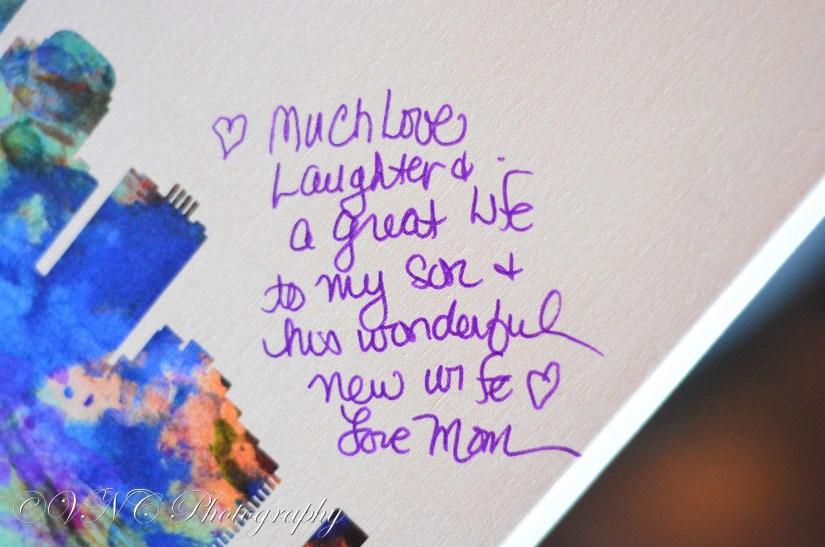 ♡ Much Love
Laughter &
a great life
to my son &
his wonderful
new wife ♡
Love Mom
©VNC Photography